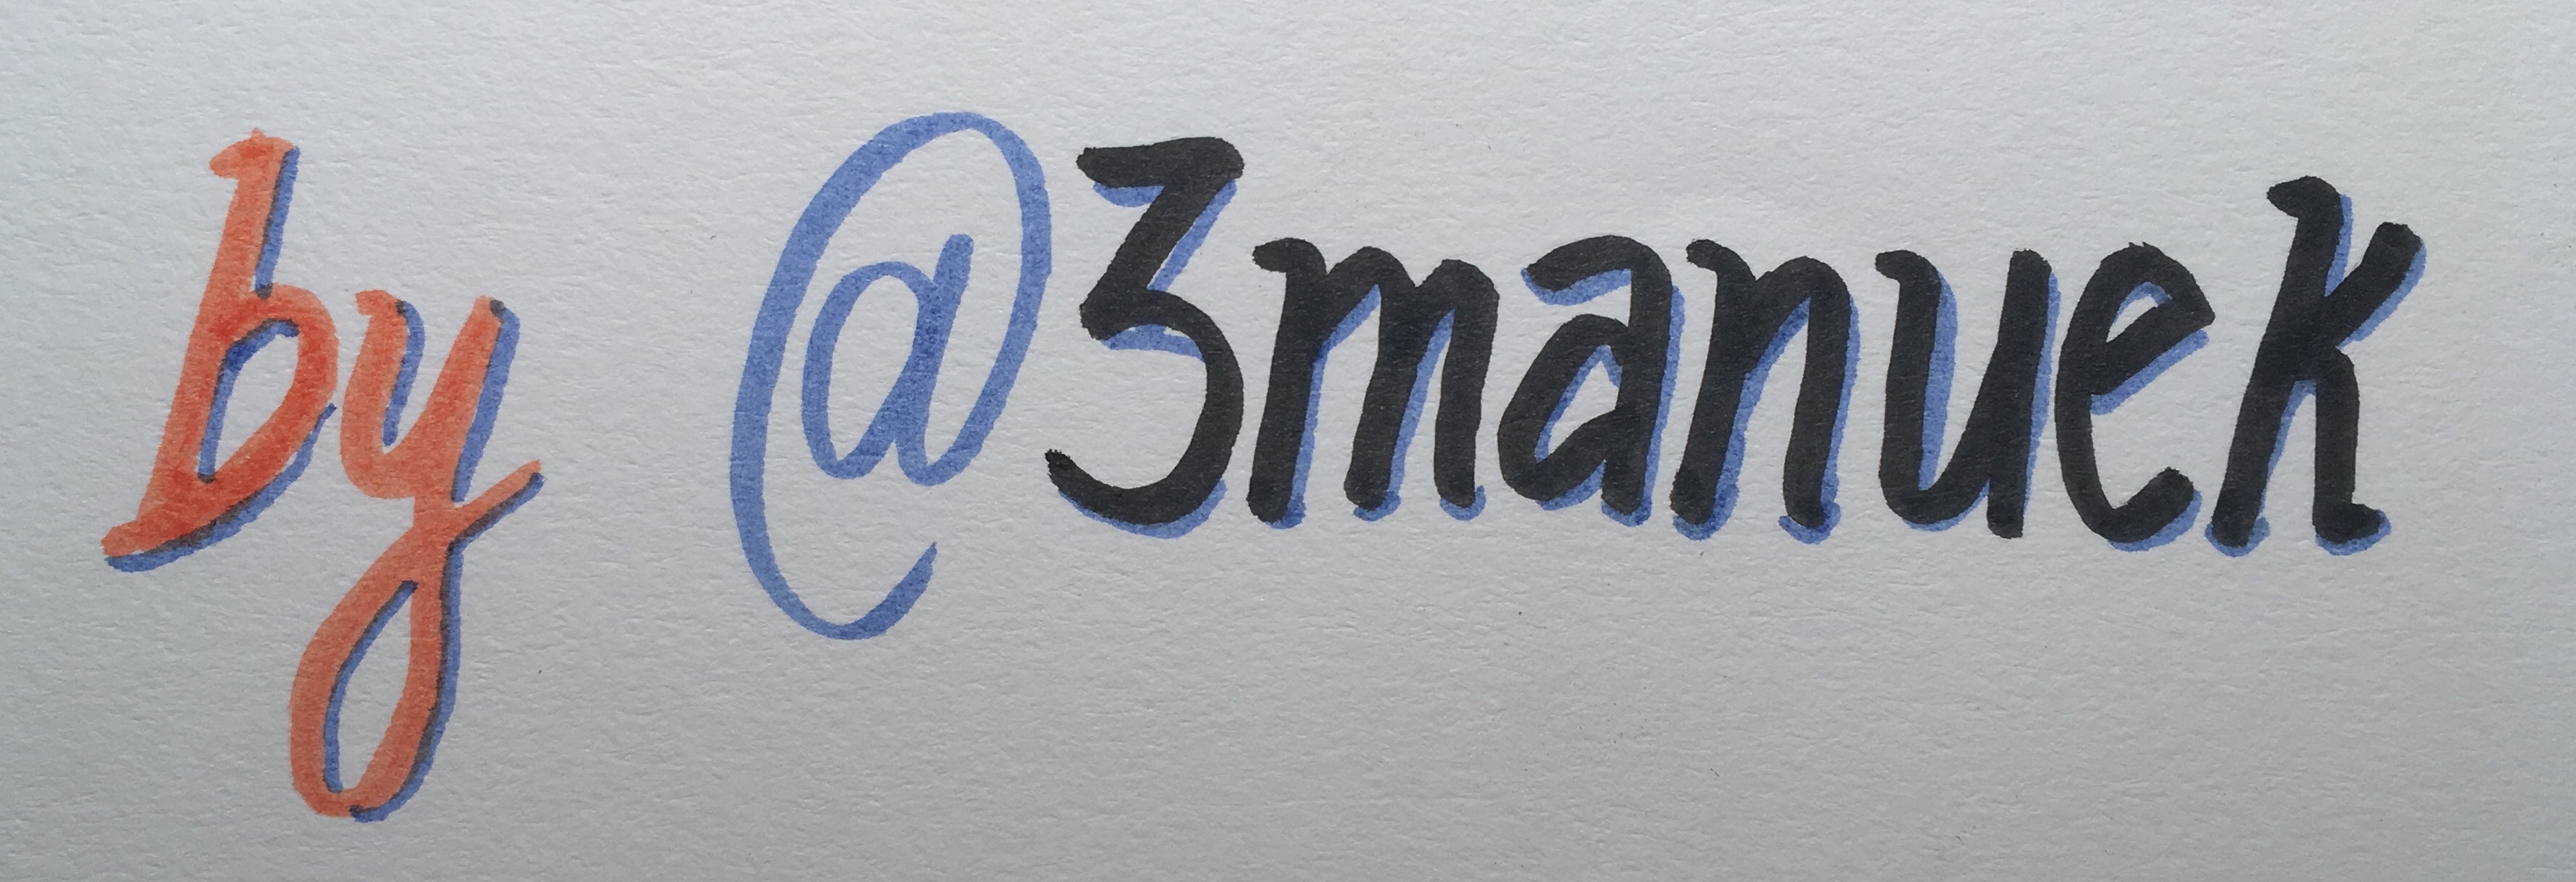 by @3manuek